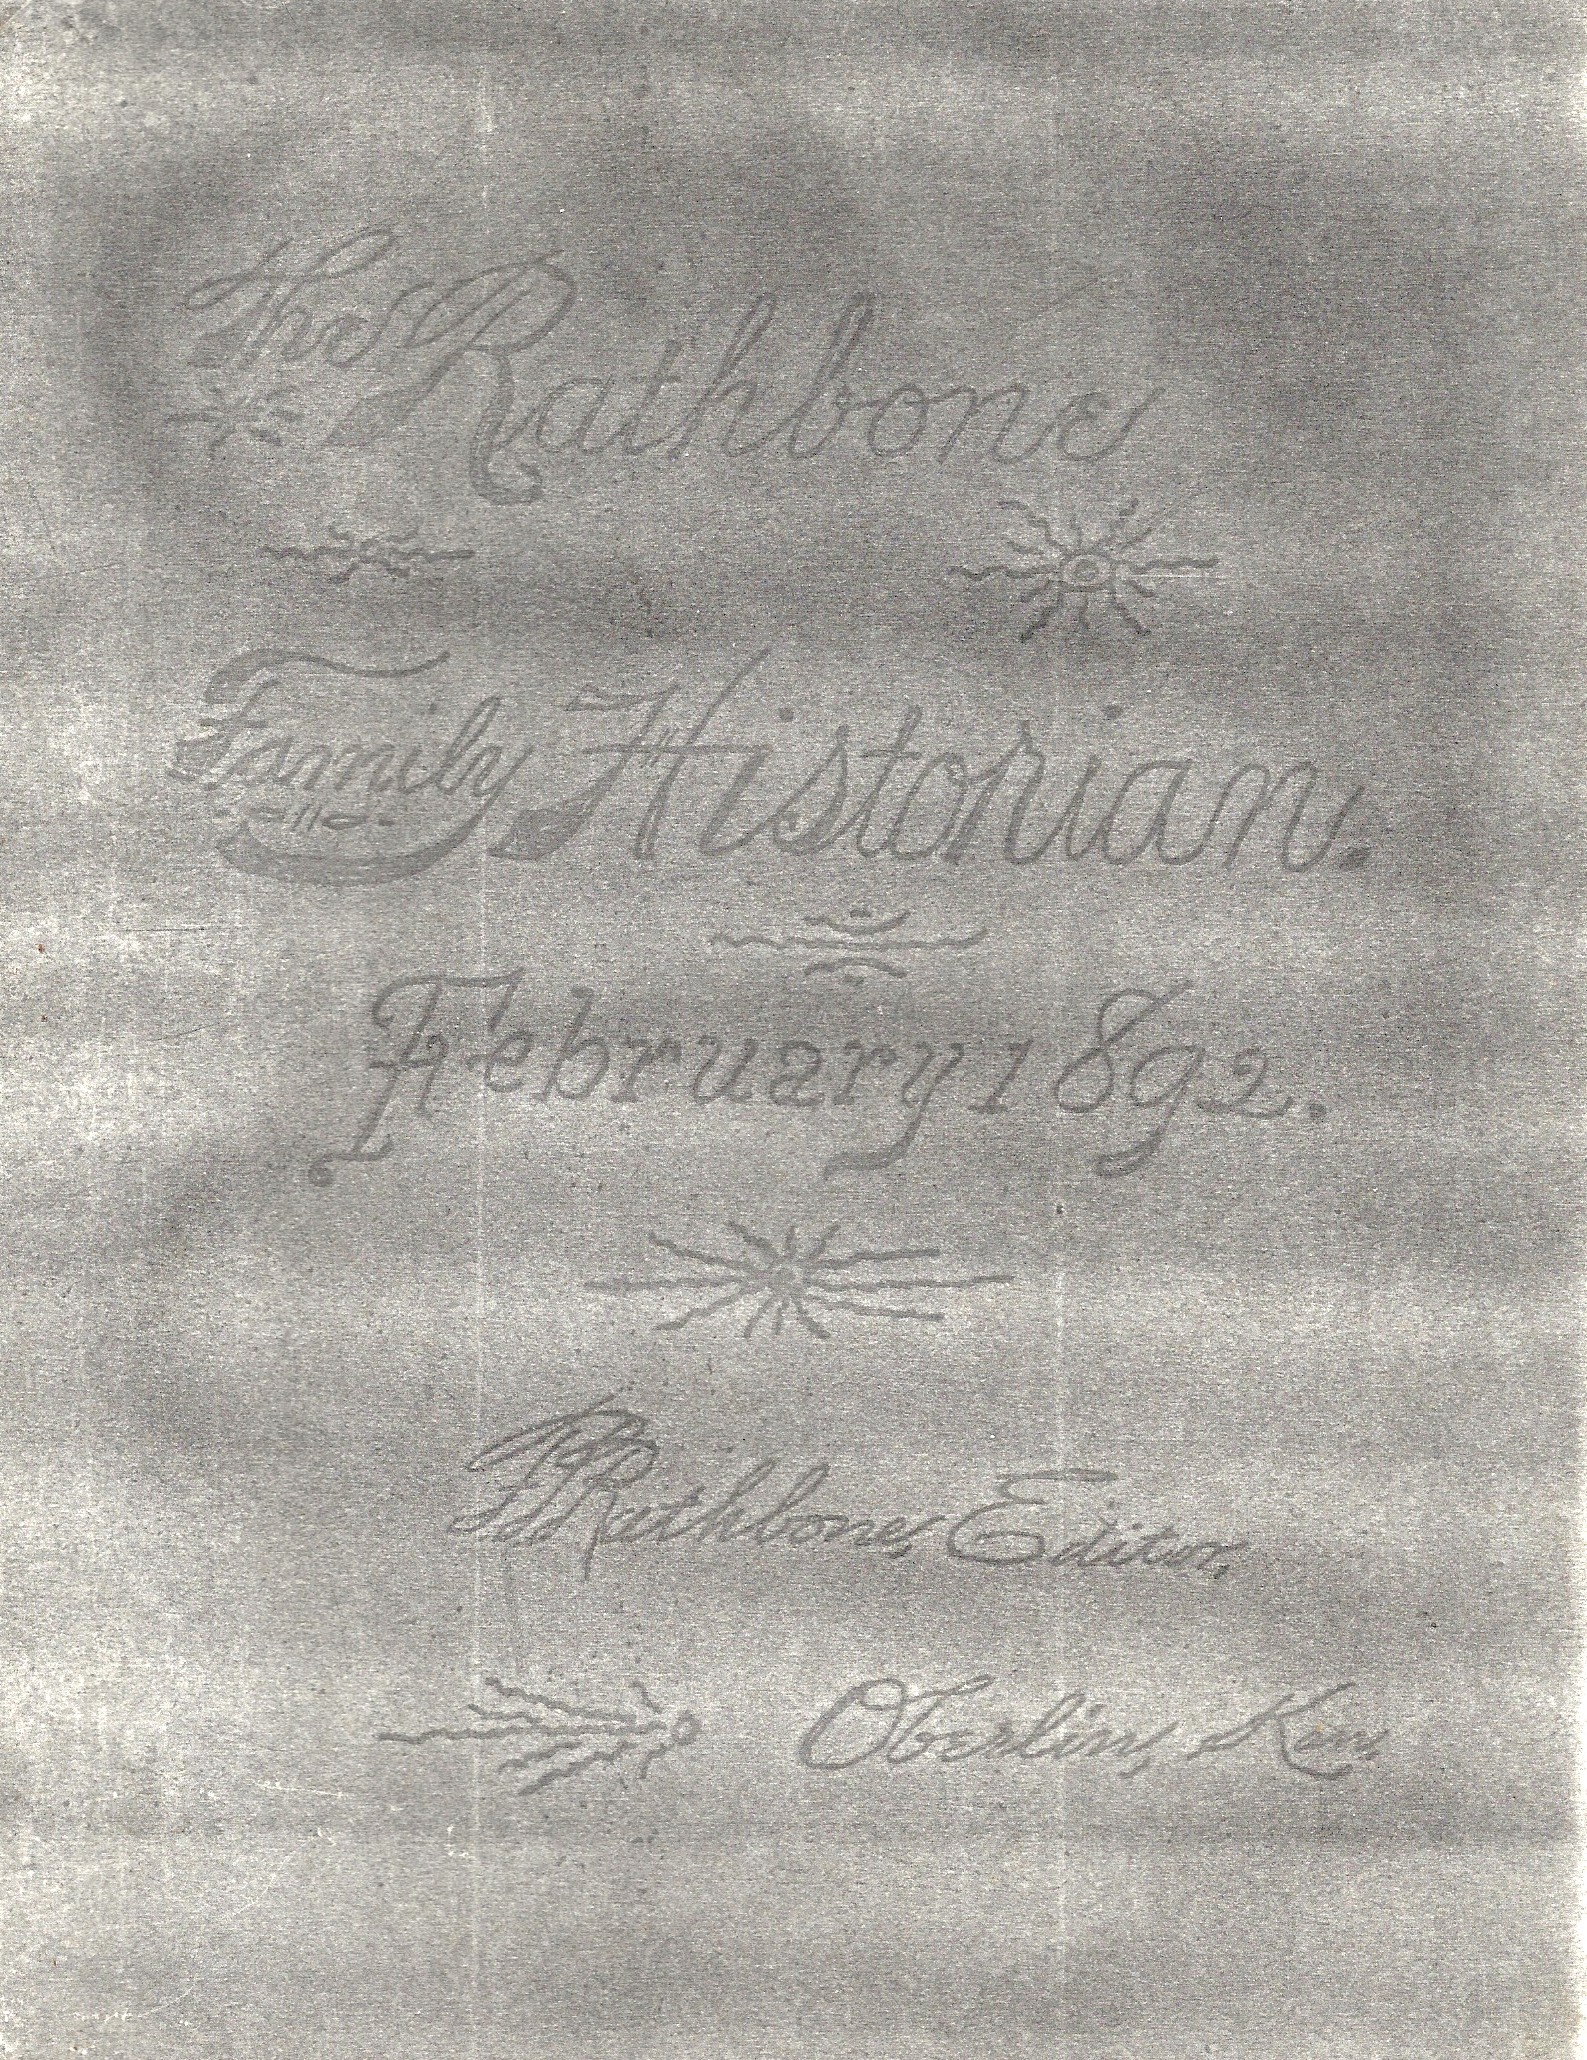 The Rathbone
Family Historian.
February 1892.
Rathbone, Editor,
Oberlin, Kan.